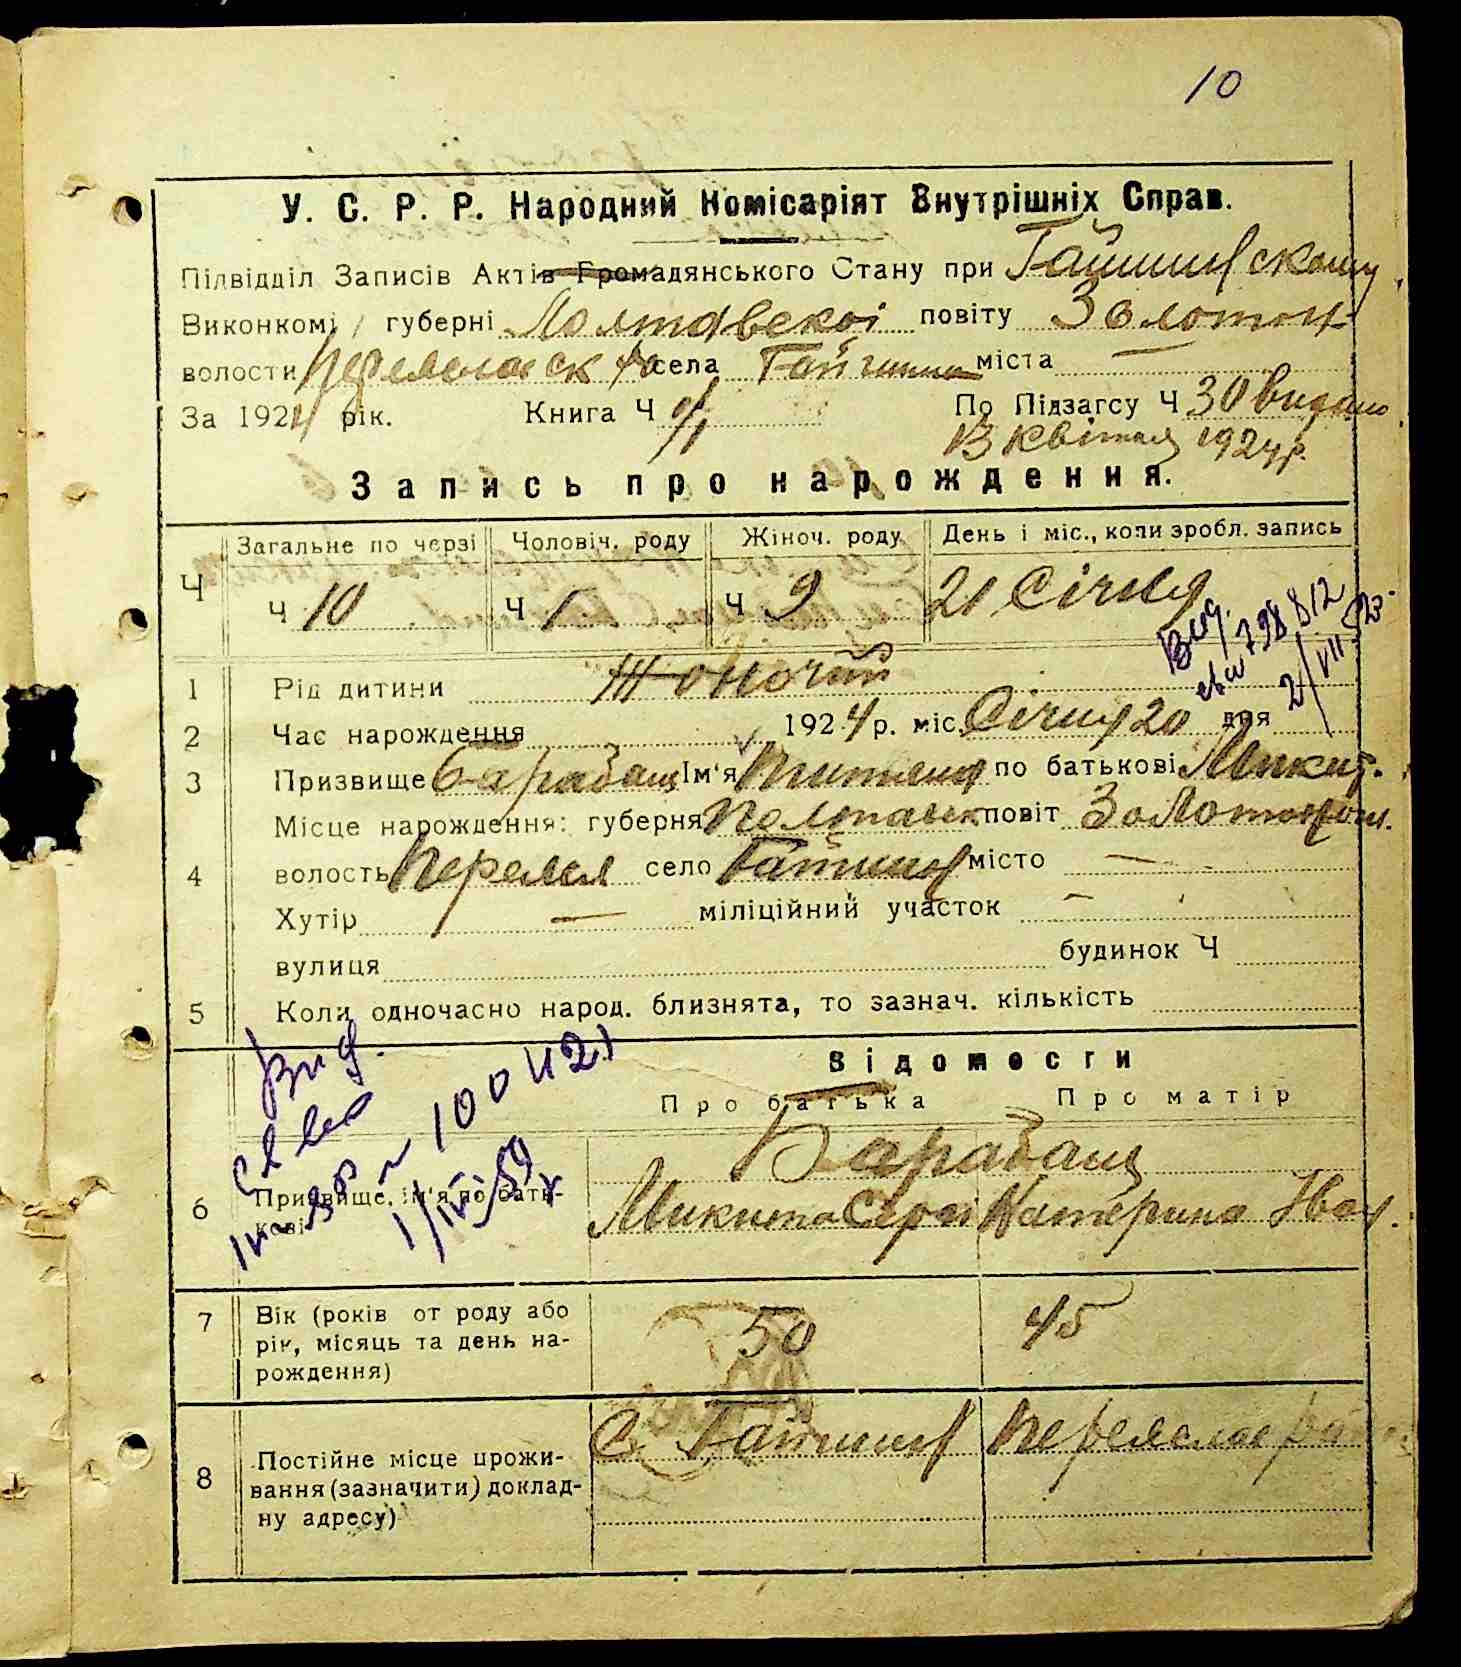 10
У. С. Р. Р. Народний Комісаріят Внутрішніх Справ.
Підвідділ Записів Актів Громадянського Стану при Гайшинському
Виконкомі губерні Полтавскоі повіту Золотон
волости села Гайшина міста —
За 1924 рік. Книга Ч По Підзагсу Ч 30 видано
13 Квітня 1924 р.
Запись про народження.
Ч Загальне по черзі Чоловіч. роду Жіноч. роду День і міс., коли зробл. запись
Ч 10 Ч 1 Ч 9 21 Січня
Вид. 798812
1 Рід дитини Жоночий
2 Час народження 1924 р. міс. Січня 20 дня
3 Призвище Барабаш Ім'я Титяна по батькові Микит.
Місце народження: губерня Полтавськ повіт Золотоном.
4 волость Переясл село Гайшин місто —
Хутір — міліційний участок —
вулиця будинок Ч
5 Коли одночасно народ. близнята, то зазнач. кількість
Відомости
Про батька Про матір
Вид.
Барабаш
6 Призвище, ім'я по бать-
кові
Микита Сергі Катерина Іван.
7 Вік (років от роду або
рік, місяць та день на-
рождення)
50 45
С. Гайшин
8 Постійне місце прожи-
вання (зазначити) доклад-
ну адресу)